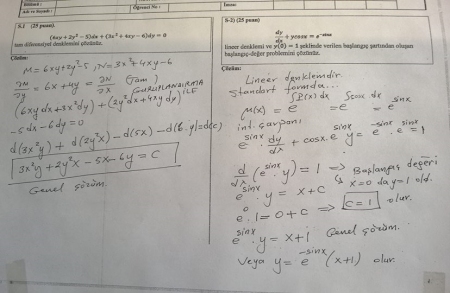 Bölümü :
Adı ve Soyadı :
Öğretmen No :
İmza:
S.1 (25 puan)
(6xy+2y²−5)dx + (3x²+4xy−6)dy = 0
tam diferansiyel denklemini çözünüz.
Çözüm:
M=6xy+2y²-5, N=3x²+4xy-6
∂M/∂y = 6x+4y = ∂N/∂x (Tam)
GRUPLANDIRMA İLE
(6xydx+3x²dy)+(2y²dx+4xydy)
-5dx-6dy=0
d(3x²y)+d(2y²x)-d(5x)-d(6y)=d(c)
3x²y+2y²x-5x-6y=C
Genel çözüm.
S-2) (25 puan)
dy/dx + ycosx = e^(-sinx)
lineer denklemi ve y(0) = 1 şeklinde verilen başlangıç şartından oluşan
başlangıç-değer problemini çözünüz.
Çözüm:
Lineer denklemdir.
standart formda...
μ(x) = e^(∫P(x)dx) = e^(∫cosxdx) = e^(sinx)
int. çarpanı
e^(sinx) · dy/dx + cosx e^(sinx) y = e^(-sinx) · e^(sinx) = 1
d/dx (e^(sinx) · y) = 1 ⇒ Başlangıç değeri
e^(sinx) · y = x+C ↳ x=0 da y=1 old.
e⁰.1=0+C ⇒ C=1 olur.
e^(sinx) · y = x+1 Genel çözüm.
Veya y = e^(-sinx) (x+1) olur.